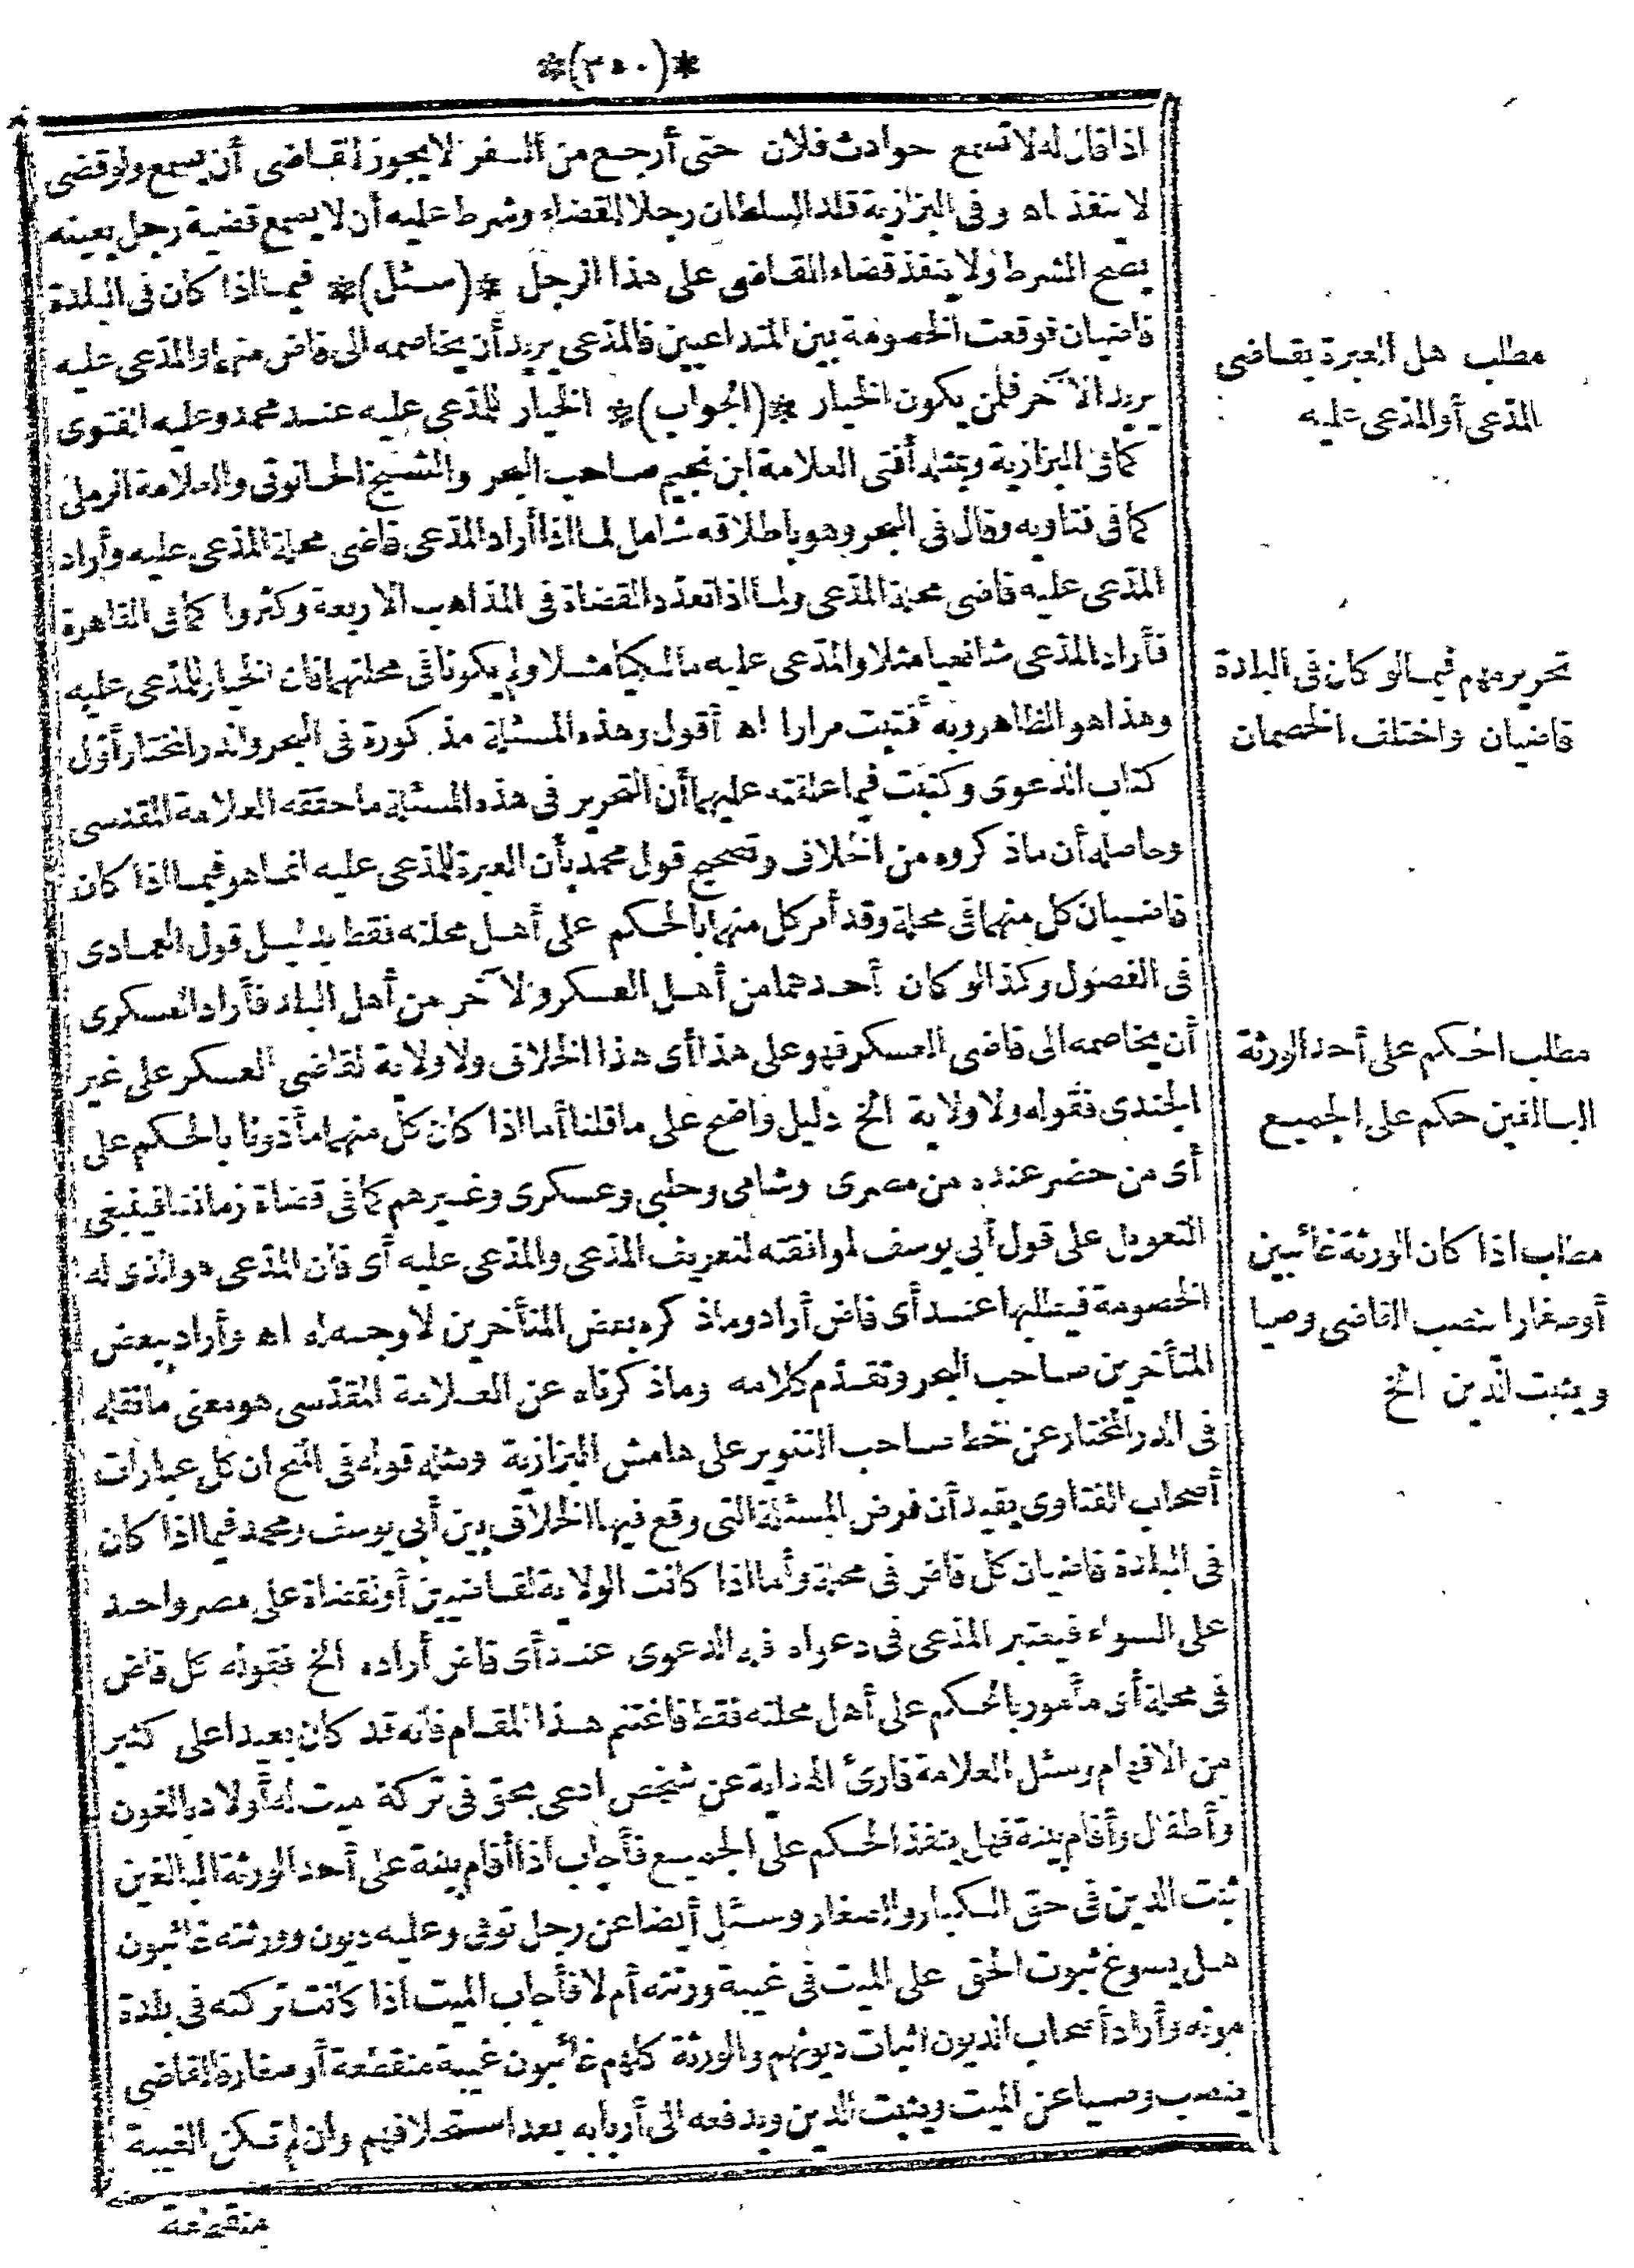 *(٣٠٠)*
اذا قال له لا تسمع حوادث فلان حتى أرجع من السفر لا يجوز للقاضى أن يسمع ولو قضى
لا ينفذ اه وفى البزازية قلد السلطان رجلا القضاء وشرط عليه أن لا يسمع قضية رجل بعينه
يصح الشرط ولا ينفذ قضاء القاضى على هذا الرجل *(سئل)* فيما اذا كان فى البلدة
قاضيان فوقعت الخصومة بين المتداعيين فالمدّعى يريد أن يخاصمه الى قاض منهما والمدّعى عليه
يريد الآخر فلمن يكون الخيار *(الجواب)* الخيار للمدّعى عليه عند محمد وعليه الفتوى
كما فى البزازية وبمثله أفتى العلامة ابن نجيم صاحب البحر والشيخ الحانوتى والعلامة الرملى
كما فى فتاويه وقال فى البحر وهو باطلاقه شامل لما اذا أراد المدّعى قاضى محلة المدّعى عليه وأراد
المدّعى عليه قاضى محلة المدّعى ولما اذا تعدّد القضاة فى المذاهب الاربعة وكثروا كما فى القاهرة
فأراد المدّعى شافعيا مثلا والمدّعى عليه مالكيا مثلا ولم يكونا فى محلتهما فان الخيار للمدّعى عليه
وهذا هو الظاهر وبه أفتيت مرارا اه أقول وهذه المسئلة مذكورة فى البحر والدر المختار أوّل
كتاب الدعوى وكتبت فيما علقته عليهما أن التحرير فى هذه المسئلة ما حققه العلامة المقدسى
وحاصله أن ما ذكروه من الخلاف وتصحيح قول محمد بأن العبرة للمدّعى عليه انما هو فيما اذا كان
قاضيان كل منهما فى محلة وقد أمر كل منهما بالحكم على أهل محلته فقط بدليل قول العمادى
فى الفصول وكذا لو كان أحدهما من أهل العسكر والآخر من أهل البلد فأراد العسكرى
أن يخاصمه الى قاضى العسكر فهو على هذا أى هذا الخلاف ولا ولاية لقاضى العسكر على غير
الجندى فقوله ولا ولاية الخ دليل واضح على ما قلنا أما اذا كان كل منهما مأذونا بالحكم على
أى من حضر عنده من مصرى وشامى وحلبى وعسكرى وغيرهم كما فى قضاة زماننا فينبغى
التعويل على قول أبى يوسف لموافقته لتعريف المدّعى والمدّعى عليه أى فان المدّعى هو الذى له
الخصومة فيطلبها عند أى قاض أراد وما ذكره بعض المتأخرين لا وجه له اه وأراد ببعض
المتأخرين صاحب البحر وتقدّم كلامه وما ذكرناه عن العلامة المقدّسى هو معنى ما نقله
فى الدر المختار عن خط صاحب التنوير على هامش البزازية ومثله قوله فى المنح ان كل عبارات
أصحاب الفتاوى يفيد أن فرض المسئلة التى وقع فيها الخلاف بين أبى يوسف ومحمد فيما اذا كان
فى البلدة قاضيان كل قاض فى محلة وأما اذا كانت الولاية لقاضيين أو لقضاة على مصر واحد
على السواء فيعتبر المدّعى فى دعواه فله الدعوى عند أى قاض أراده الخ فقوله كل قاض
فى محلة أى مأمور بالحكم على أهل محلته فقط فاغتنم هذا المقام فانه قد كان بعيدا على كثير
من الافهام وسئل العلامة قارئ الهداية عن شخص ادعى بحق فى تركة ميت له أولاد بالغون
وأطفال وأقام بينة فهل ينفذ الحكم على الجميع فأجاب اذا أقام بينة على أحد الورثة البالغين
ثبت الدين فى حق الكبار والصغار وسئل أيضا عن رجل توفى وعليه ديون وورثته غائبون
هل يسوغ ثبوت الحق على الميت فى غيبة ورثته أم لا فأجاب الميت اذا كانت تركته فى بلدة
موته وأراد أصحاب الديون اثبات ديونهم والورثة كلهم غائبون غيبة منقطعة أو صغار فالقاضى
ينصب وصيا عن الميت ويثبت الدين ويدفعه الى أربابه بعد استحلافهم وان لم تكن الغيبة
منقطعة
مطلب هل العبرة بقاضى
المدّعى أو المدّعى عليه
تحرير مهم فيما لو كان فى البلدة
قاضيان واختلف الخصمان
مطلب الحكم على أحد الورثة
البالغين حكم على الجميع
مطلب اذا كان الورثة غائبين
أو صغارا ينصب القاضى وصيا
ويثبت الدّين الخ